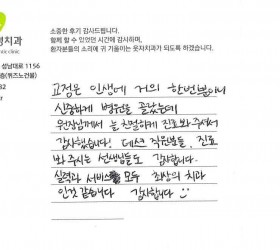 치과
nic clinic
성남대로 1156
층(위즈노건물)
32
r
소중한 후기 감사드립니다.
함께 할 수 있었던 시간에 감사하며,
환자분들의 소리에 귀 기울이는 치과가 되도록 하겠습니다.
교정은 인생에 거의 한번뿐이니
신중하게 병원을 골랐는데
원장님께서 늘 친절하게 진료 봐 주셔서
감사했습니다! 데스크 직원분들, 진료
봐 주시는 선생님들도 감사합니다.
실력과 서비스 모두 최상의 치과
인것 같습니다 감사합니다